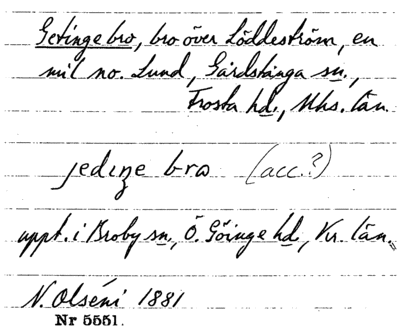 Getinge bro, bro över Löddeström, en
mil no. Lund, Gårdstånga sn.,
Frosta hd., Mhs. län.
jedıŋe bro (acc.?)
uppt. i Broby sn., Ö. Göinge hd., Kr. län.
N. Olséni 1881
Nr 5551.